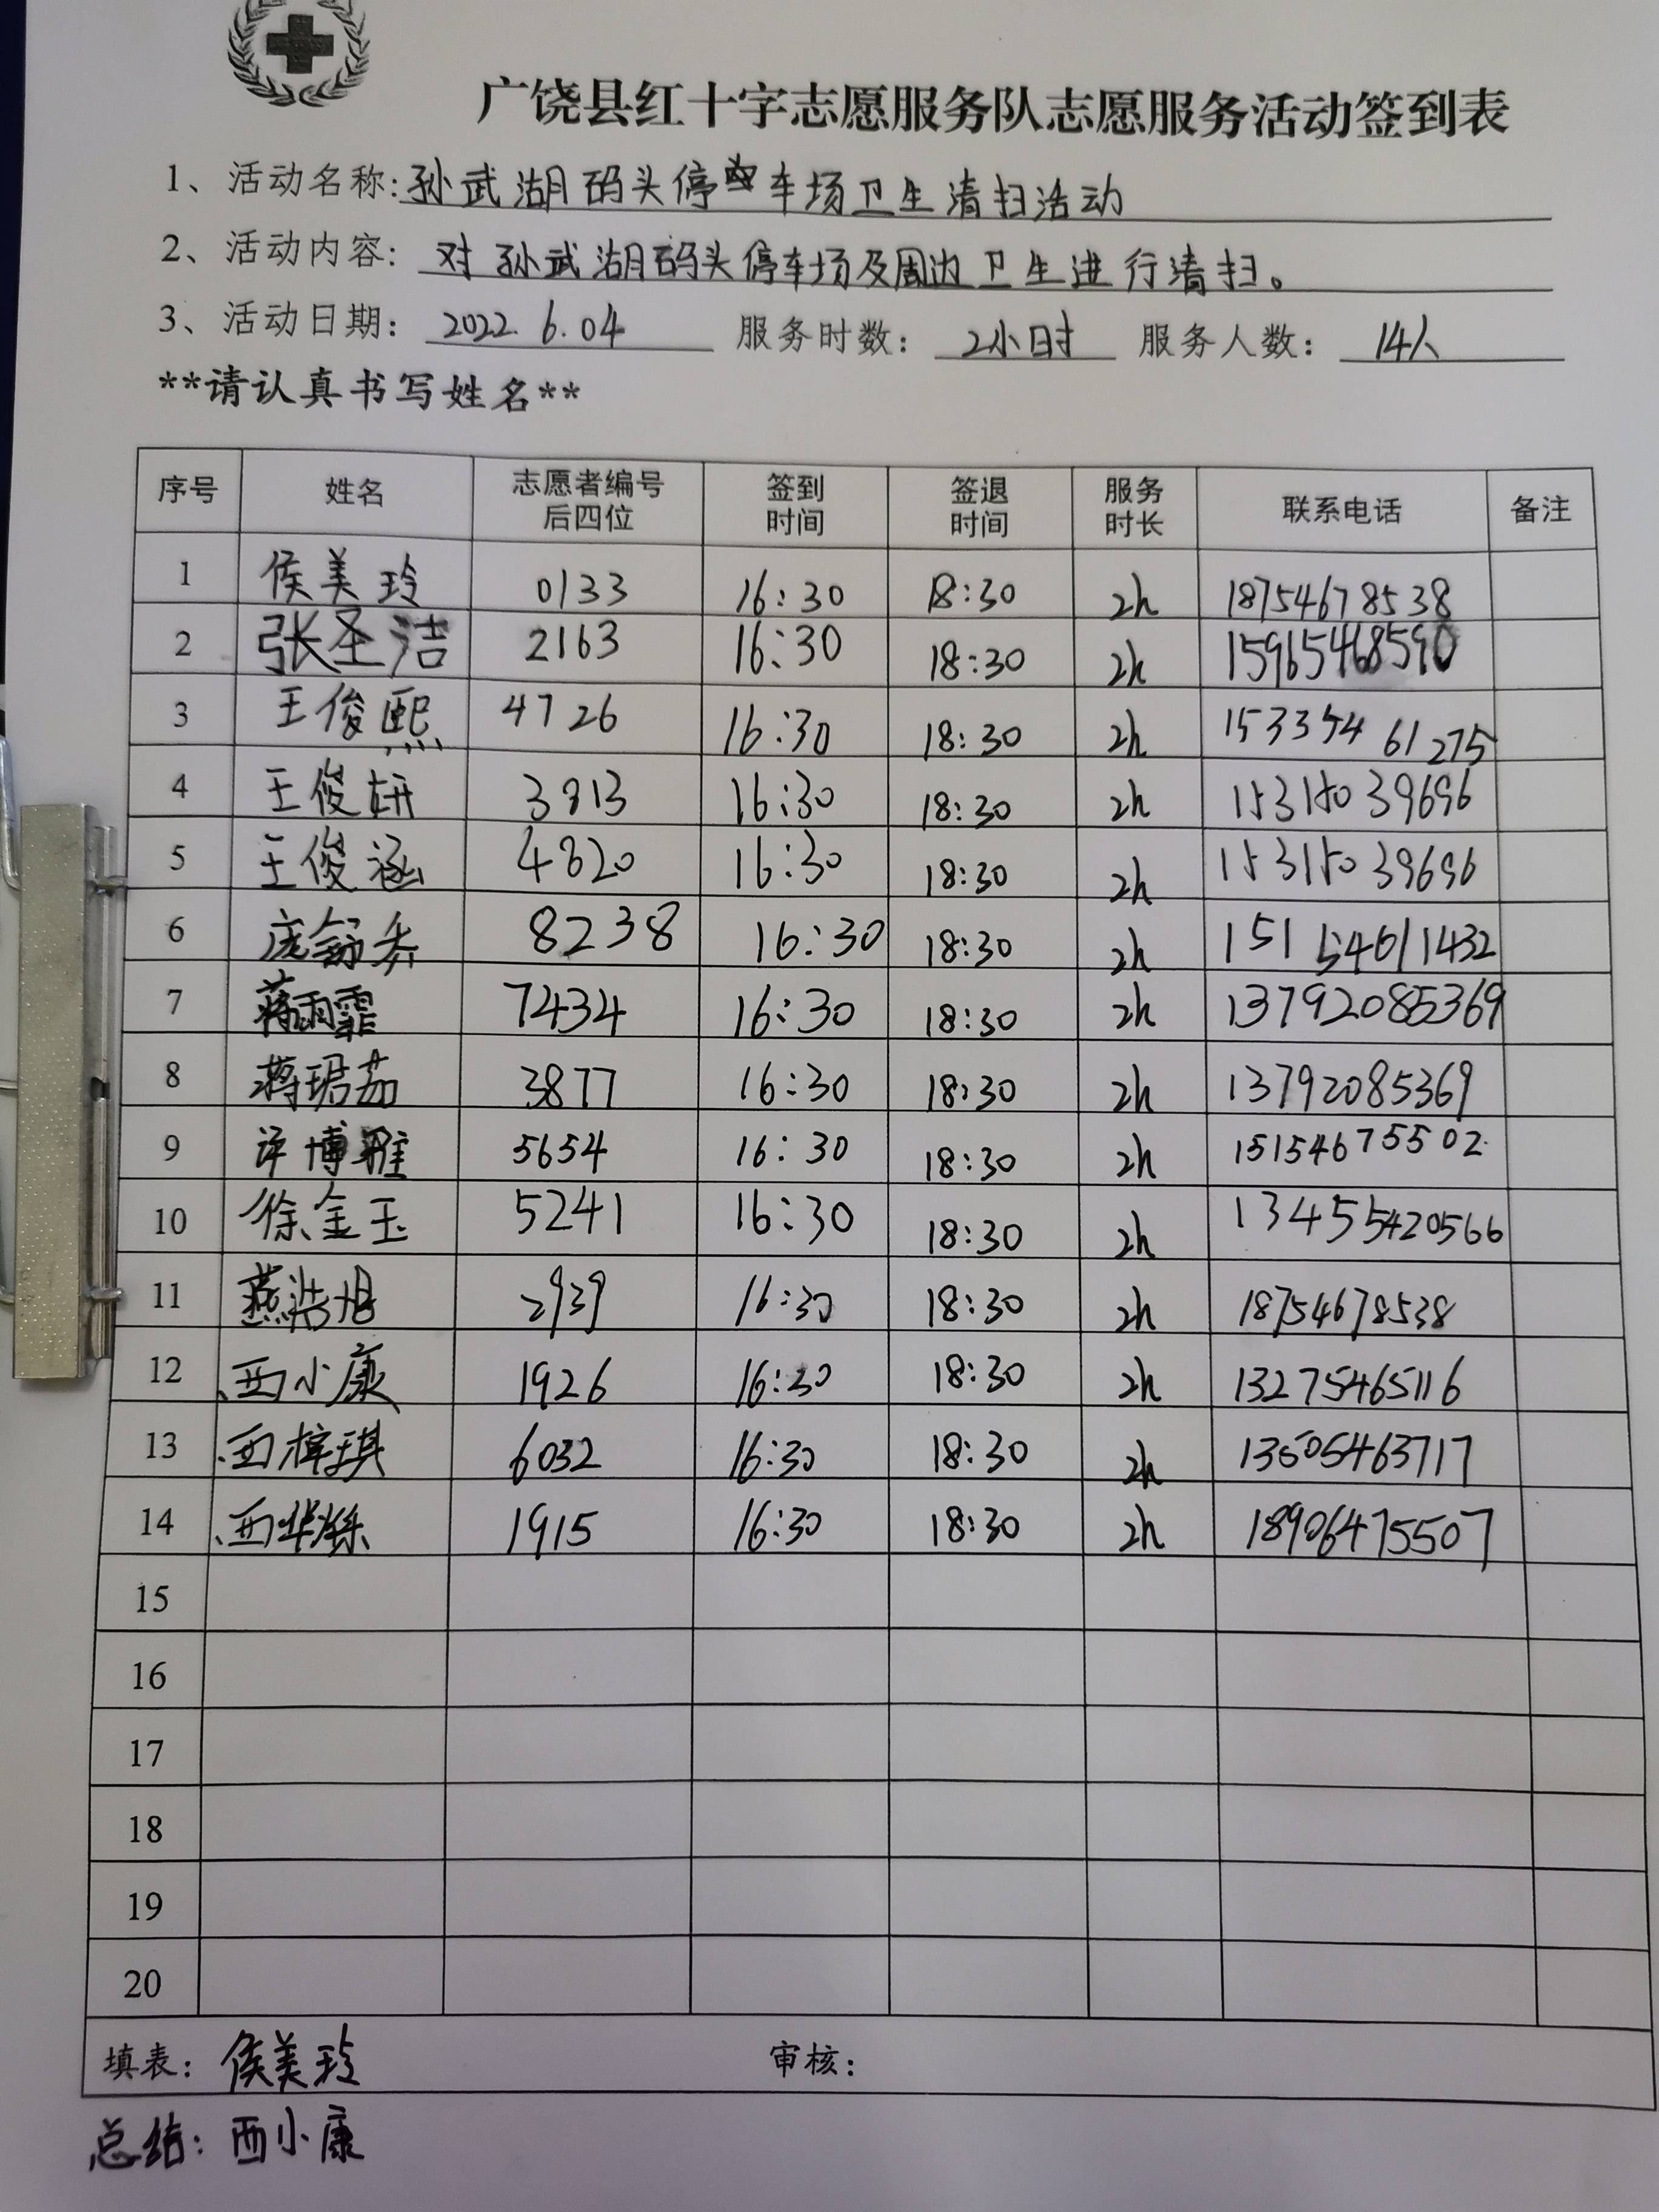 广饶县红十字志愿服务队志愿服务活动签到表
1、活动名称:孙武湖码头停车场卫生清扫活动
2、活动内容: 对孙武湖码头停车场及周边卫生进行清扫。
3、活动日期: 2022.6.04 服务时数: 2小时 服务人数: 14人
**请认真书写姓名**
序号 姓名 志愿者编号后四位 签到时间 签退时间 服务时长 联系电话 备注
1 侯美玲 0133 16:30 18:30 2h 18754678538
2 张圣洁 2163 16:30 18:30 2h 15965468590
3 王俊熙 4726 16:30 18:30 2h 15335461275
4 王俊妍 3813 16:30 18:30 2h 15315039696
5 王俊涵 4820 16:30 18:30 2h 15315039696
6 庞舒 8238 16:30 18:30 2h 15154611432
7 蒋雨霏 7434 16:30 18:30 2h 13792085369
8 蒋珺茹 3877 16:30 18:30 2h 13792085369
9 许博雅 5654 16:30 18:30 2h 15154675502
10 徐金玉 5241 16:30 18:30 2h 13455420566
11 燕浩旭 2939 16:30 18:30 2h 18754678538
12 西小康 1926 16:30 18:30 2h 13275465116
13 西梓琪 6032 16:30 18:30 2h 13605463717
14 西华 1915 16:30 18:30 2h 18906475507
15
16
17
18
19
20
填表: 侯美玲 审核:
总结: 西小康